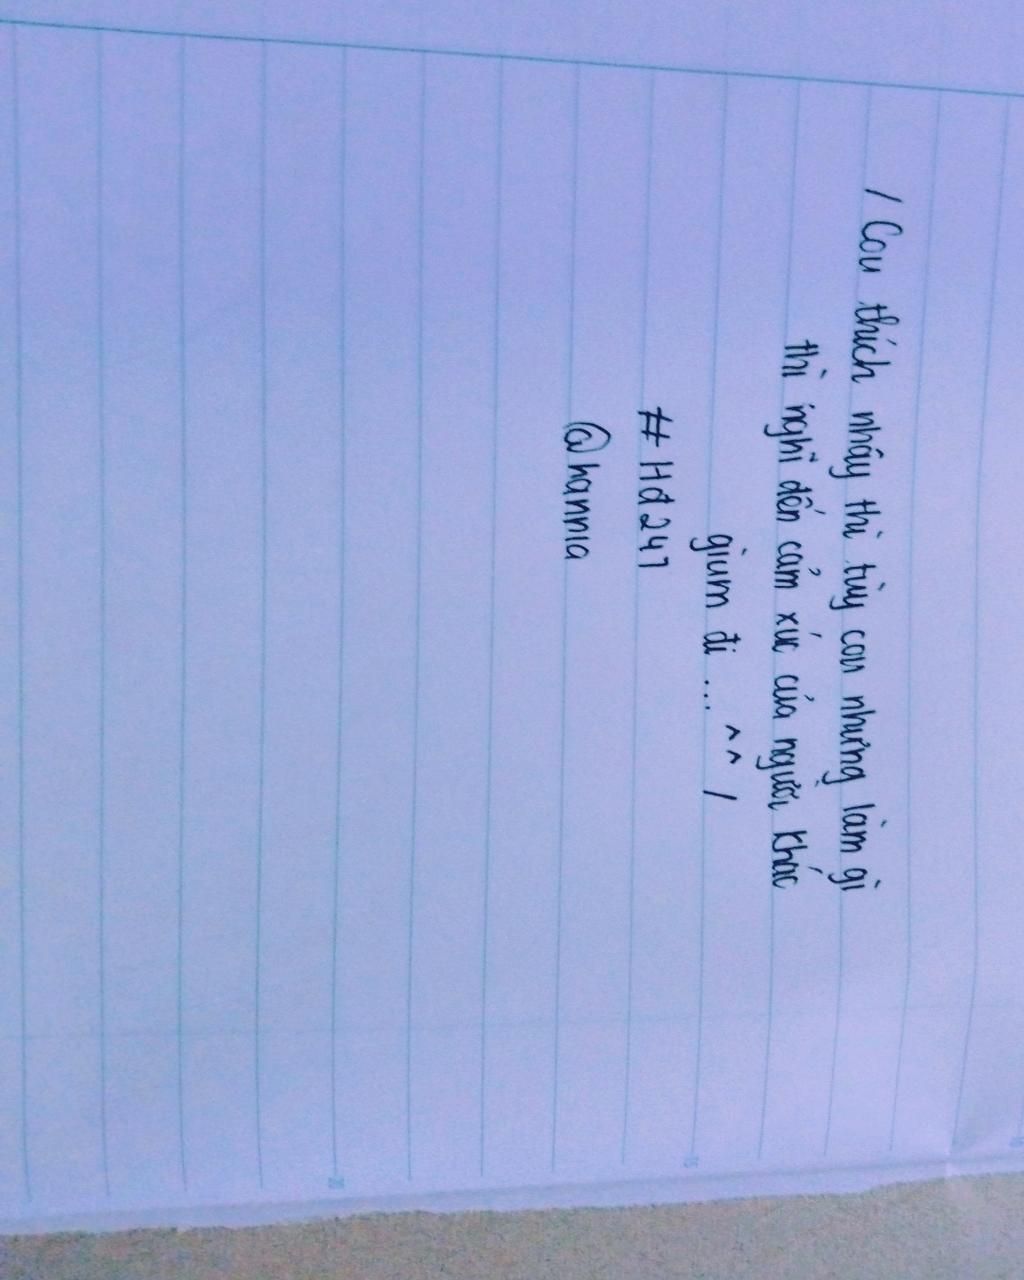 / Cou thích nhây thì tùy cou nhưng làm gì
thì nghĩ đến cảm xúc của người khác
gium đi ... ^^ /
#Hd247
@hannia